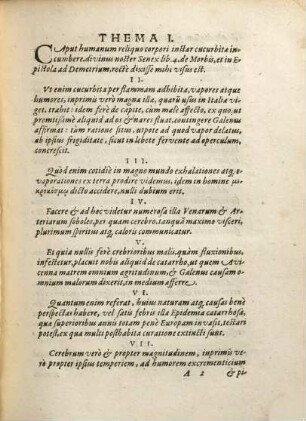 THEMA I.
CAput humanum reliquo corpori instar cucurbitæ in-
cumbere, divinus noster Senex lib. 4. de Morbis, et in E-
pistola ad Demetrium, rectè dixisse mihi visus est.
II.
Vt enim cucurbita per flammam adhibita, vapores atque
humores, inprimis verò magna illa, quarũ usus in Italia vi-
get, trahit: idem ferè de capite, cum malè affecto, ex quo, ut
promtissimè aliquid ad os & nares fluat, contingere Galenus
affirmat: tùm ratione situs, utpote ad quod vapor delatus,
ab ipsius frigiditate, sicut in lebete fervente ad operculum,
concrescit.
III.
Quòd enim cotidie in magno mundo exhalationes atq; e-
vaporationes ex terra prodire videmus, idem in homine
dicto accidere, nulli dubium erit.
IV.
Facere & ad hoc videtur numerosa illa Venarum & Ar-
teriarum soboles, per quam cerebro, tanquã maximo visceri,
plurimum spiritus atq; caloris communicatur.
V.
Et quia nullis ferè crebrioribus malis, quàm fluxionibus,
infestetur, placuit nobis aliquid de catarrho, ut quem Avi-
cenna matrem omnium ægritudinum, & Galenus causam o-
mnium malorum dixerit, in medium afferre.
VI.
Quantum enim referat, huius naturam atq; causas benè
perspectas habere, vel satis febris illa Epidemia catarrhosa,
quæ superioribus annis totam penè Europam invasit, testari
potest, ex qua multi posthabita curatione extincti sunt.
VII.
Cerebrum verò & propter magnitudinem, inprimis ve-
rò propter ipsius temperiem, ad humorem excrementicium
A 2 & pi-